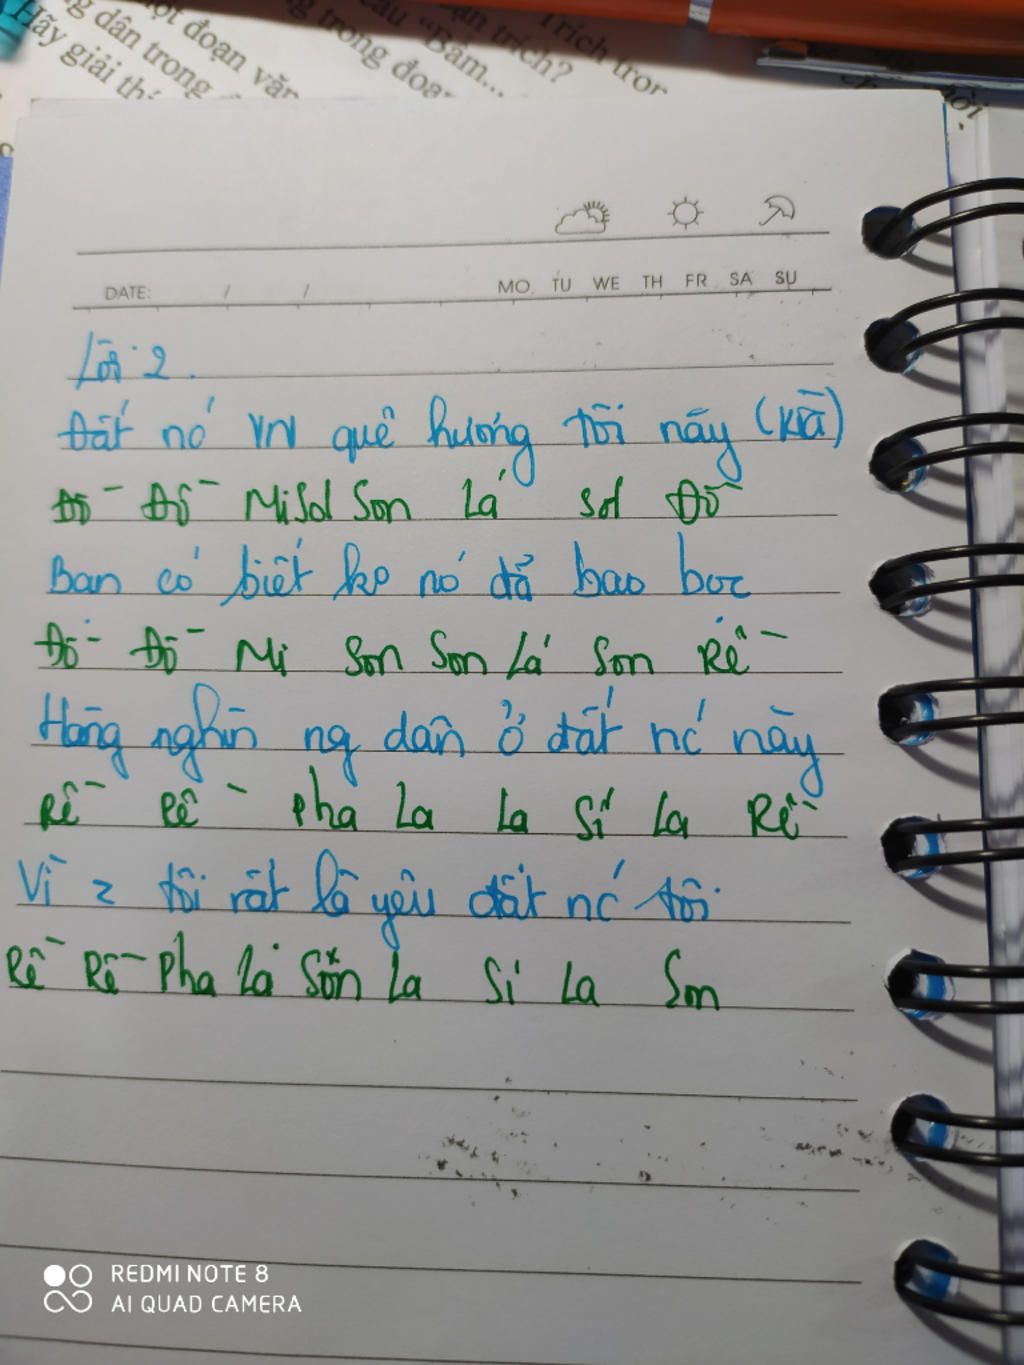 Hãy giải th
g dân trong
một đoạn văn
g trong đoạn
câu "Bẩm...
ạn trích?
Trích tron
DATE: / / MO TU WE TH FR SA SU
Lời 2.
Đất nớ VN quê hương tôi nãy (kìa)
Đô Đô Mi Sol Son Lá sol Đô
Ban có biết ko nó đã bao boc
Đô Đô Mi Son Son Lá Son Rê
Hàng nghìn ng dân ở đất nớ này
Rê Rê Pha La La Sí La Rê
Vì 2 tôi rất là yêu đất nớ tôi
Rê Rê Pha Lá Son La Si La Son
REDMI NOTE 8
AI QUAD CAMERA